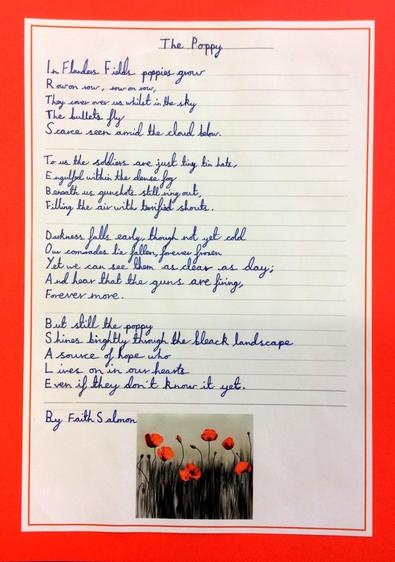 The Poppy
In Flanders Fields poppies grow
Row on row, row on row,
They cover over us whilst in the sky
The bullets fly
Scarce seen amid the cloud below.
To us the soldiers are just tiny tin hats,
Engulfed within the dense fog
Beneath us gunshots still ring out,
Filling the air with terrified shouts.
Darkness falls early, though not yet cold
Our comrades lie fallen, forever frozen
Yet we can see them as clear as day;
And hear that the guns are firing,
Forever more.
But still the poppy
Shines brightly through the bleack landscape
A source of hope who
Lives on in our hearts
Even if they don't know it yet.
By Faith Salmon